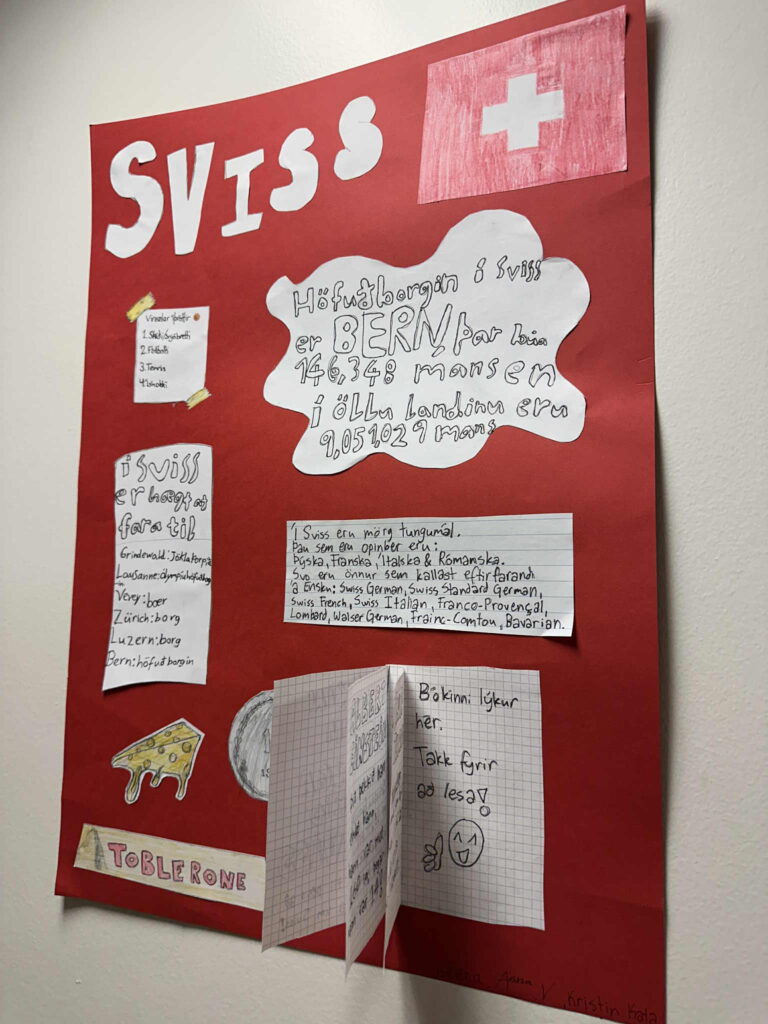 SVISS
Höfuðborgin í Sviss
er BERN, þar búa
146,348 mansen
í öllu landinu eru
9,051,029 mans
Vinsælar íþróttir
1. Skíði/Snjóbretti
2. Fótbolti
3. Tennis
4. Íshokkí
í SVISS
er hægt að
fara til
Grindewald: Jöklakorpa
Lausanne: Olympichöfuðborg
Vevey: bær
Zürich: borg
Luzern: borg
Bern: höfuðborgin
Í Sviss eru mörg tungumál.
Þau sem eru opinber eru:
Þýska, Franska, Ítalska & Rómanska.
Svo eru önnur sem kallast eftirfarandi
á Ensku: Swiss German, Swiss Standard German,
Swiss French, Swiss Italian, Franco-Provençal,
Lombard, Walser German, Frainc-Comtou, Bavarian.
ALBERT
EINSTEIN
Bókinni lýkur
her.
Takk fyrir
að lesa!
TOBLERONE
Kristín Kata